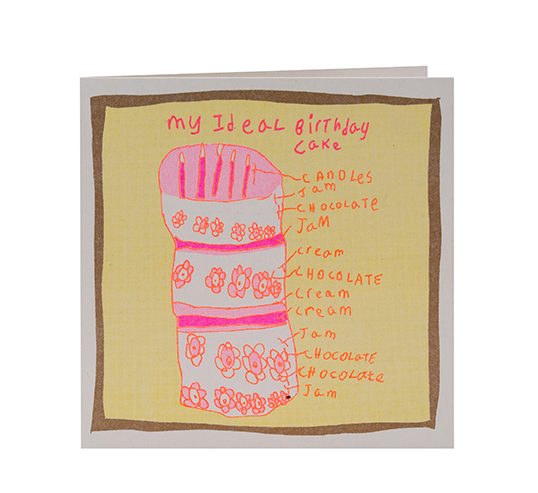 my Ideal Birthday
Cake
CANDLES
Jam
CHOCOLATE
JAM
cream
CHOCOLATE
Cream
cream
Jam
CHOCOLATE
CHOCOLate
Jam